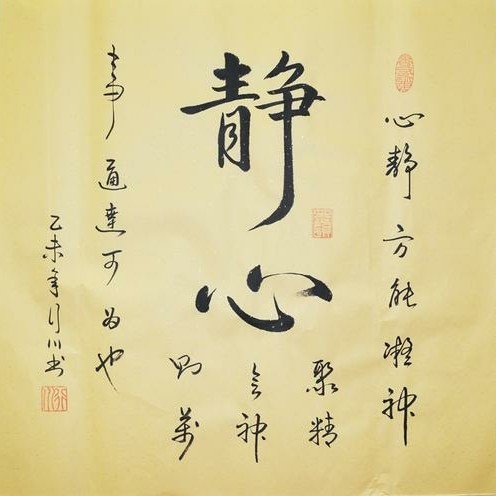 静心
心静方能凝神
聚精
会神
则萬
事通達可为也
乙未年月川书